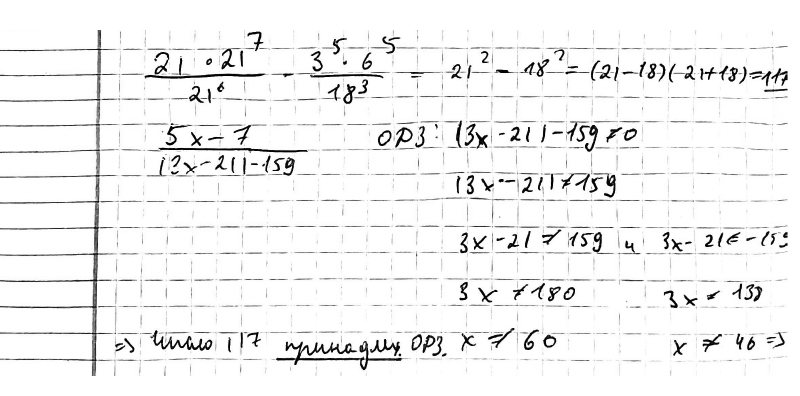 21 · 21^7 / 21^6 - 3^5 · 6^5 / 18^3 = 21^2 - 18^2 = (21-18)(21+18) = 117
5x-7 / |3x-21|-159 ОДЗ: |3x-21|-159≠0
|3x-21|≠159
3x-21≠159 и 3x-21≠-159
3x≠180 3x≠-138
=> число 117 принадлеж. ОДЗ. x≠60 x≠46 =>